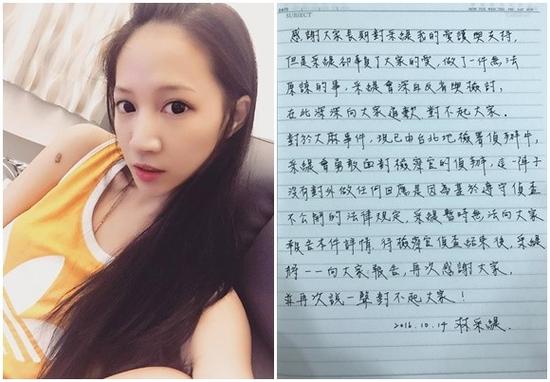 SUBJECT
感謝大家長期對采緹我的愛護與支持,
但是采緹卻辜負了大家的愛,做了一件無法
原諒的事,采緹會深自反省與檢討,
在此深深向大家道歉,對不起大家.
對於大麻事件,現已由台北地檢署偵辦中,
采緹會勇敢面對檢察官的偵辦,這一陣子
沒有對外做任何回應是因為基於遵守偵查
不公開的法律規定,采緹暫時無法向大家
報告本件詳情,待檢察官偵查結束後,采緹
將一一向大家報告,再次感謝大家,
並再次說一聲對不起大家!
2016.10.14 采緹